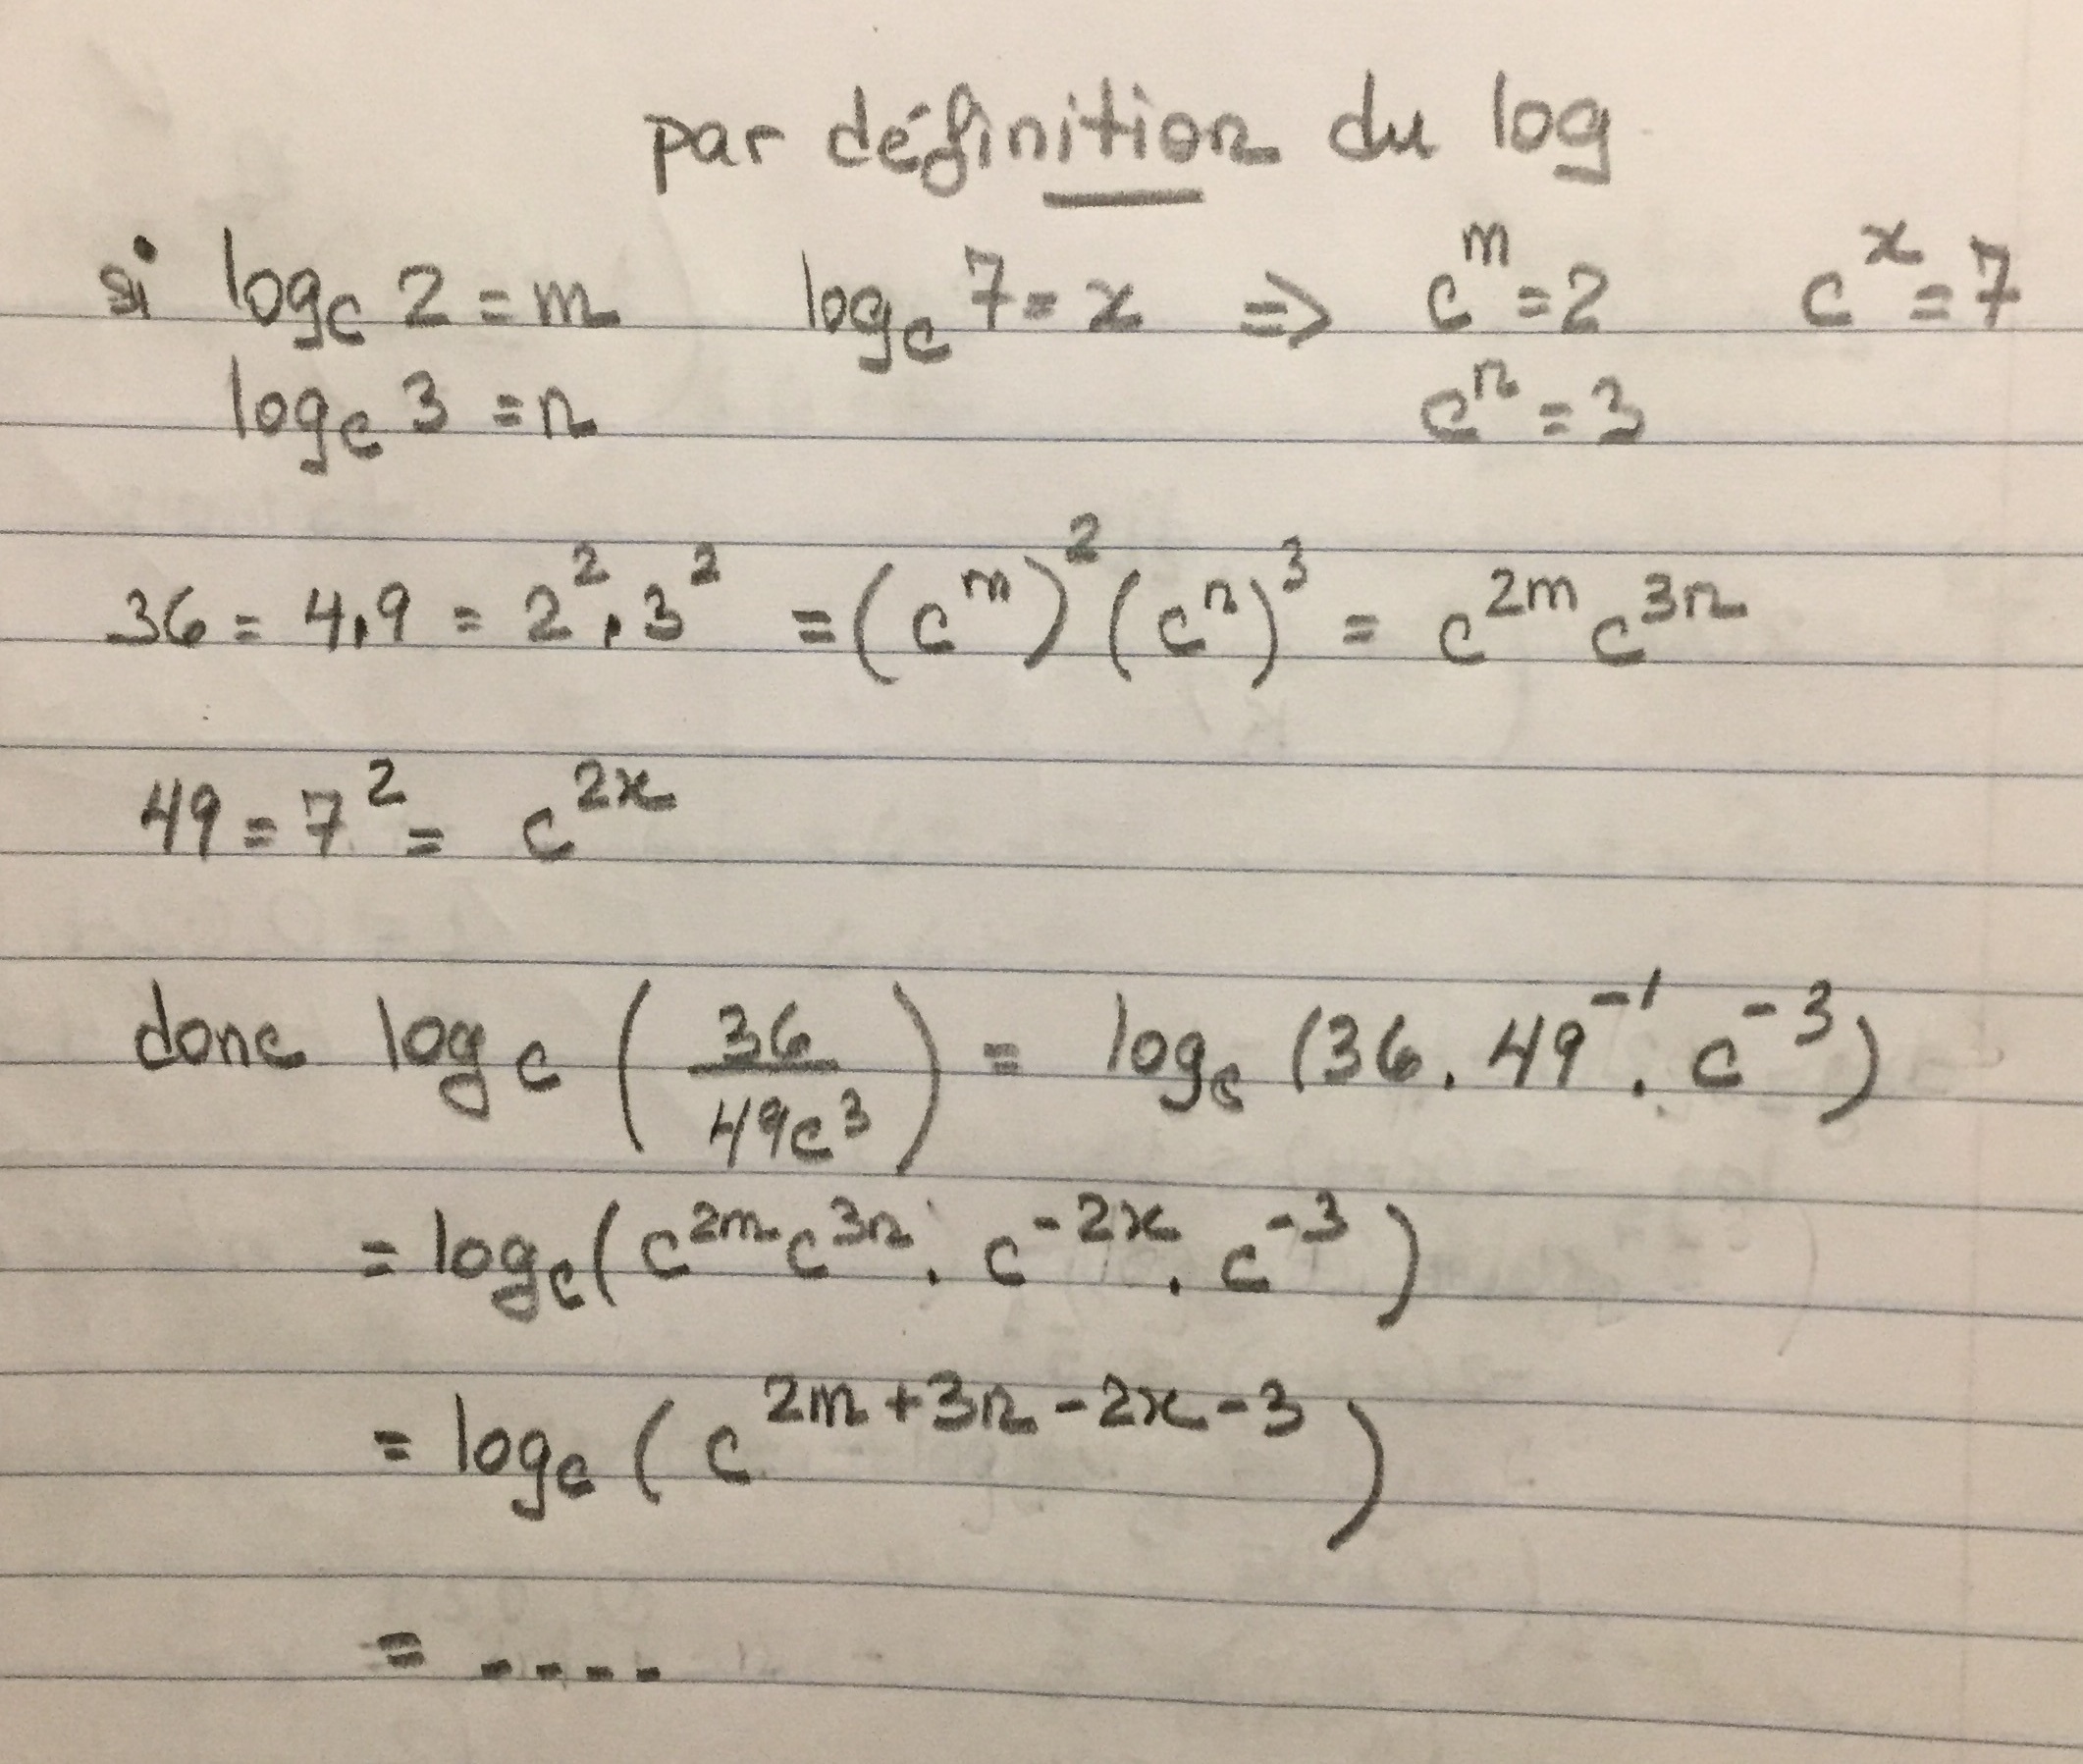 par définition du log
si log_c 2 = m   log_c 7 = x ⇒ c^m = 2   c^x = 7
log_c 3 = n   c^n = 3
36 = 4.9 = 2^2 . 3^2 = (c^m)^2 (c^n)^3 = c^{2m} c^{3n}
49 = 7^2 = c^{2x}
donc log_c (36 / 49c^3) = log_c (36 . 49^{-1} . c^{-3})
= log_c (c^{2m} c^{3n} . c^{-2x} . c^{-3})
= log_c (c^{2m+3n-2x-3})
= ....